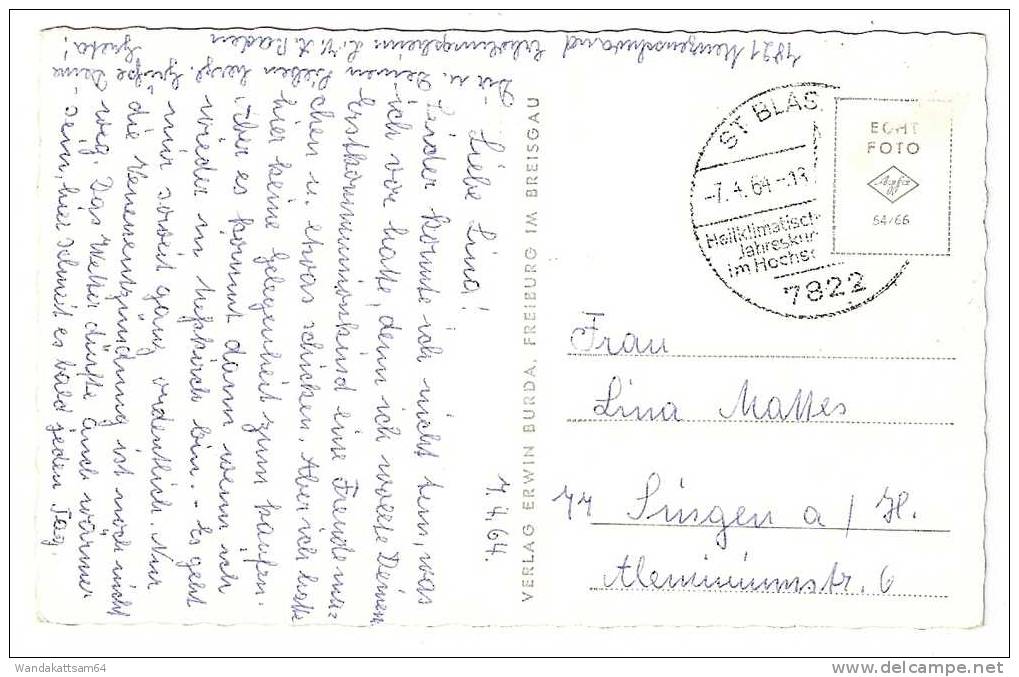 7.4.64.
Liebe Lina!
Leider konnte ich nicht tun, was
ich vor hatte, denn ich wollte Deinem
Erstkommunionkind eine Freude ma=
chen u. etwas schicken. Aber ich hatte
hier keine Gelegenheit zum kaufen.
Aber es kommt dann wenn ich
wieder in bin. - Es geht
mir soweit ganz ordentlich. Nur
die Venenentzündung ist noch nicht
weg. Das Wetter dürfte auch wärmer
sein, hier schneit es bald jeden Tag.
Dir u. Deinen Lieben herzl. Grüße Deine
Greta!
7821 Menzenschwand Erholungsheim L.V.A. Baden
VERLAG ERWIN BURDA, FREIBURG IM BREISGAU
ST BLAS
-7.4.64-18
Heilklimatisch
Jahreskur
im Hochs
7822
ECHT
FOTO
Agfa
64/66
Frau
Lina Mattes
77 Singen a/H.
Aleminiumstr. 6
Wandakattsam64
delcampe.net